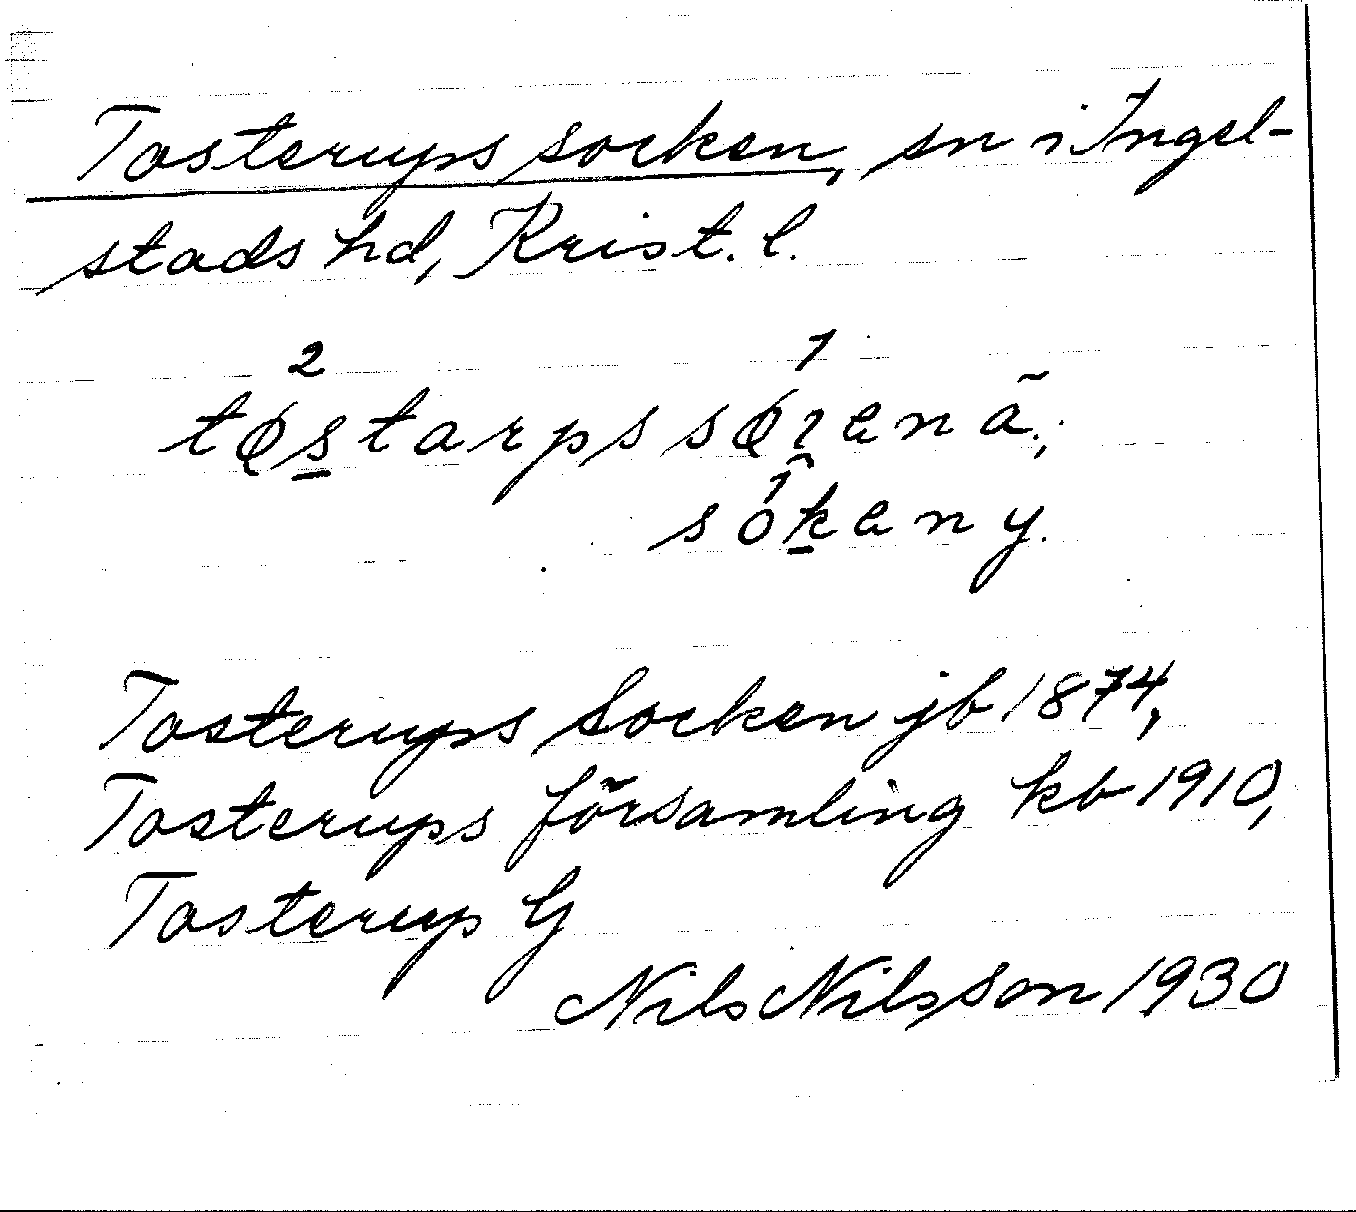 Tosterups socken, sn i Ingel-
stads hd, Krist. l.
2 1
Tosterups Socken jb 1874,
Tosterups församling kb 1910,
Tosterup G
Nils Nilsson 1930